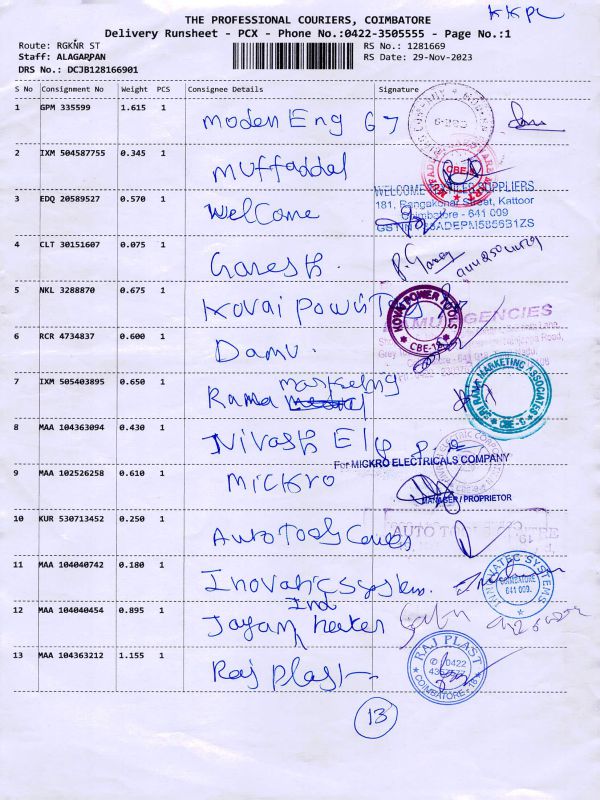 KKPC
THE PROFESSIONAL COURIERS, COIMBATORE
Delivery Runsheet - PCX - Phone No.:0422-3505555 - Page No.:1
Route: RGKNR ST RS No.: 1281669
Staff: ALAGARPAN RS Date: 29-Nov-2023
DRS No.: DCJB128166901
S No Consignment No Weight PCS Consignee Details Signature
1 GPM 335599 1.615 1 Moden Eng
2 IXM 504587755 0.345 1 Muffaddal
CBE
3 EDQ 20589527 0.570 1 Welcome
SUPPLIERS
Street, Kattoor
Coimbatore - 641 009
4 CLT 30151607 0.075 1 Ganesh.
5 NKL 3288870 0.675 1 Kovai
KOVAI POWER TOOLS
AGENCIES
6 RCR 4734837 0.600 1 Damu.
7 IXM 505403895 0.650 1 Rama marketing
RAMA MARKETING ASSOCIATES
8 MAA 104363094 0.430 1 Nivash
For MICKRO ELECTRICALS COMPANY
9 MAA 102526258 0.610 1 Mickro
MANAGER / PROPRIETOR
10 KUR 530713452 0.250 1 Auto Tools
AUTO
11 MAA 104040742 0.180 1 Inovatic system.
SYSTEMS
COIMBATORE
641 009.
12 MAA 104040454 0.895 1 Jayam heater Ind
13 MAA 104363212 1.155 1 Raj Plast
RAJ PLAST
0422
COIMBATORE
13